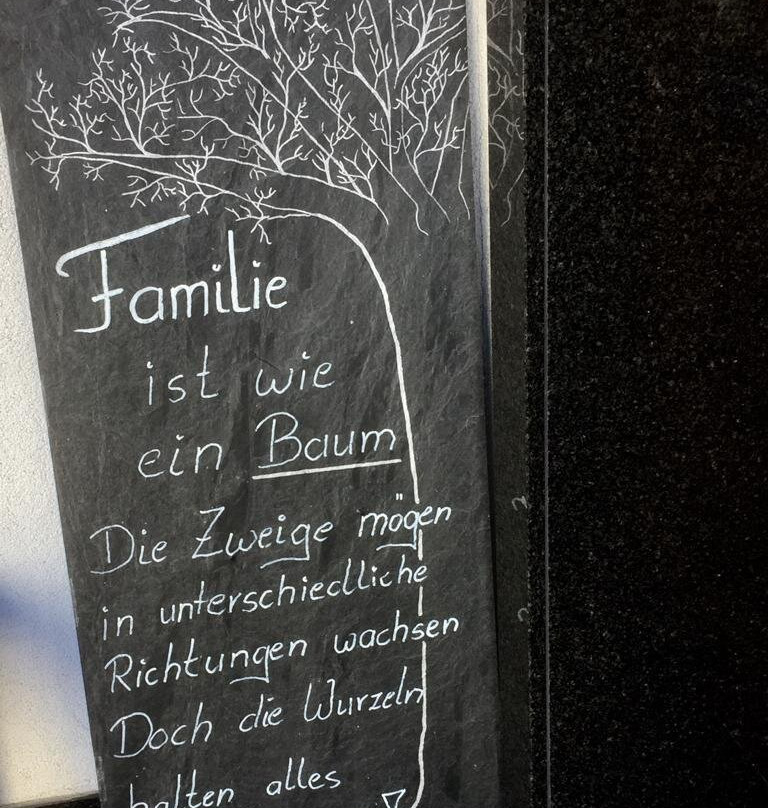 Familie
ist wie
ein Baum
Die Zweige mögen
in unterschiedliche
Richtungen wachsen
Doch die Wurzeln
halten alles